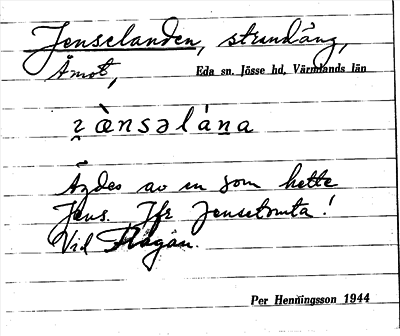 Jenselanden, strandäng,
Åmot,
Eda sn. Jösse hd, Värmlands län
ɀ̯æ̀nsəláṉa
Ägdes av en som hette
Jens. Jfr Jensetomta!
Vid Flagan.
Per Henningsson 1944